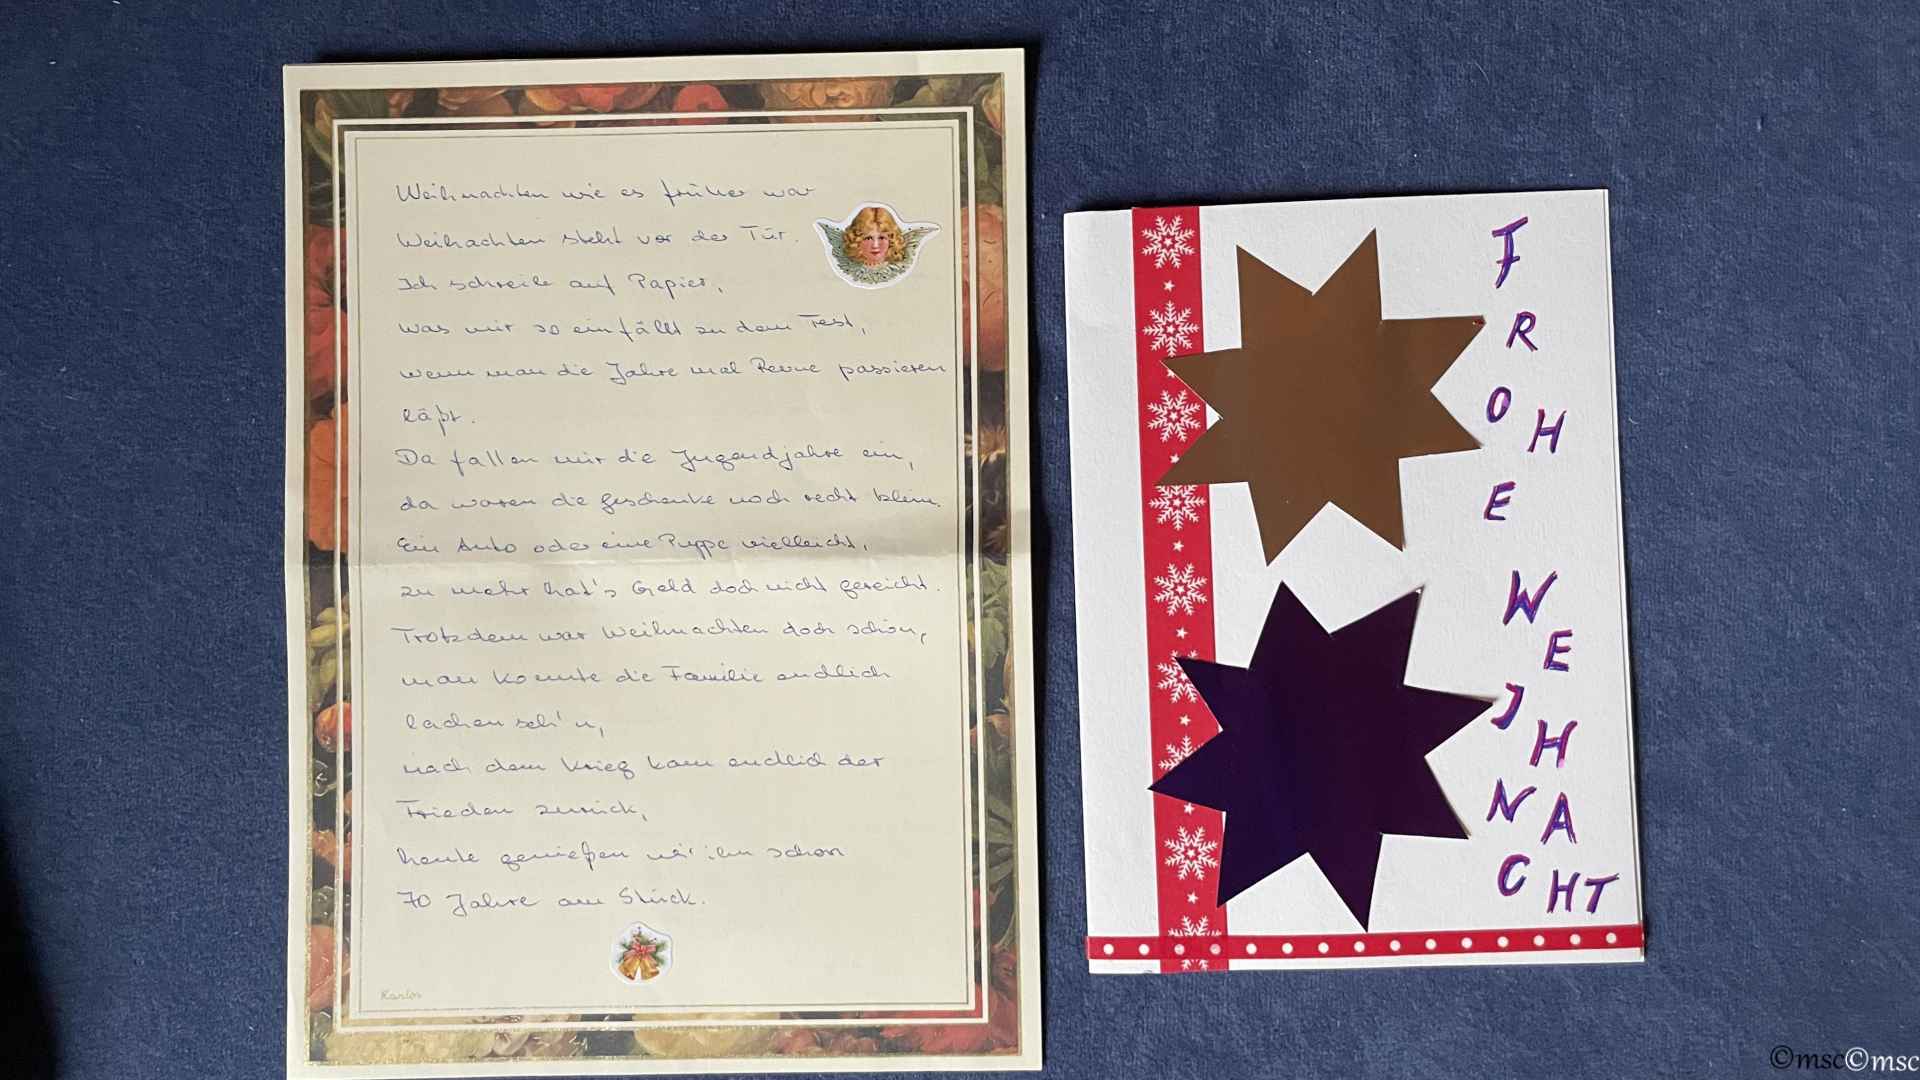 Weihnachten wie es früher war
Weihachten steht vor der Tür.
Ich schreibe auf Papier,
was mir so einfällt zu dem Fest,
wenn man die Jahre mal Revue passieren
läßt.
Da fallen mir die Jugendjahre ein,
da waren die Geschenke noch recht klein.
Ein Auto oder eine Puppe vielleicht,
zu mehr hat's Geld doch nicht gereicht.
Trotzdem war Weihnachten doch schön,
man konnte die Familie endlich
lachen seh'n,
nach dem Krieg kam endlich der
Frieden zurück,
heute genießen wir ihn schon
70 Jahre am Stück.
Karlos
FROHE
WEJHNACHT
©msc©msc